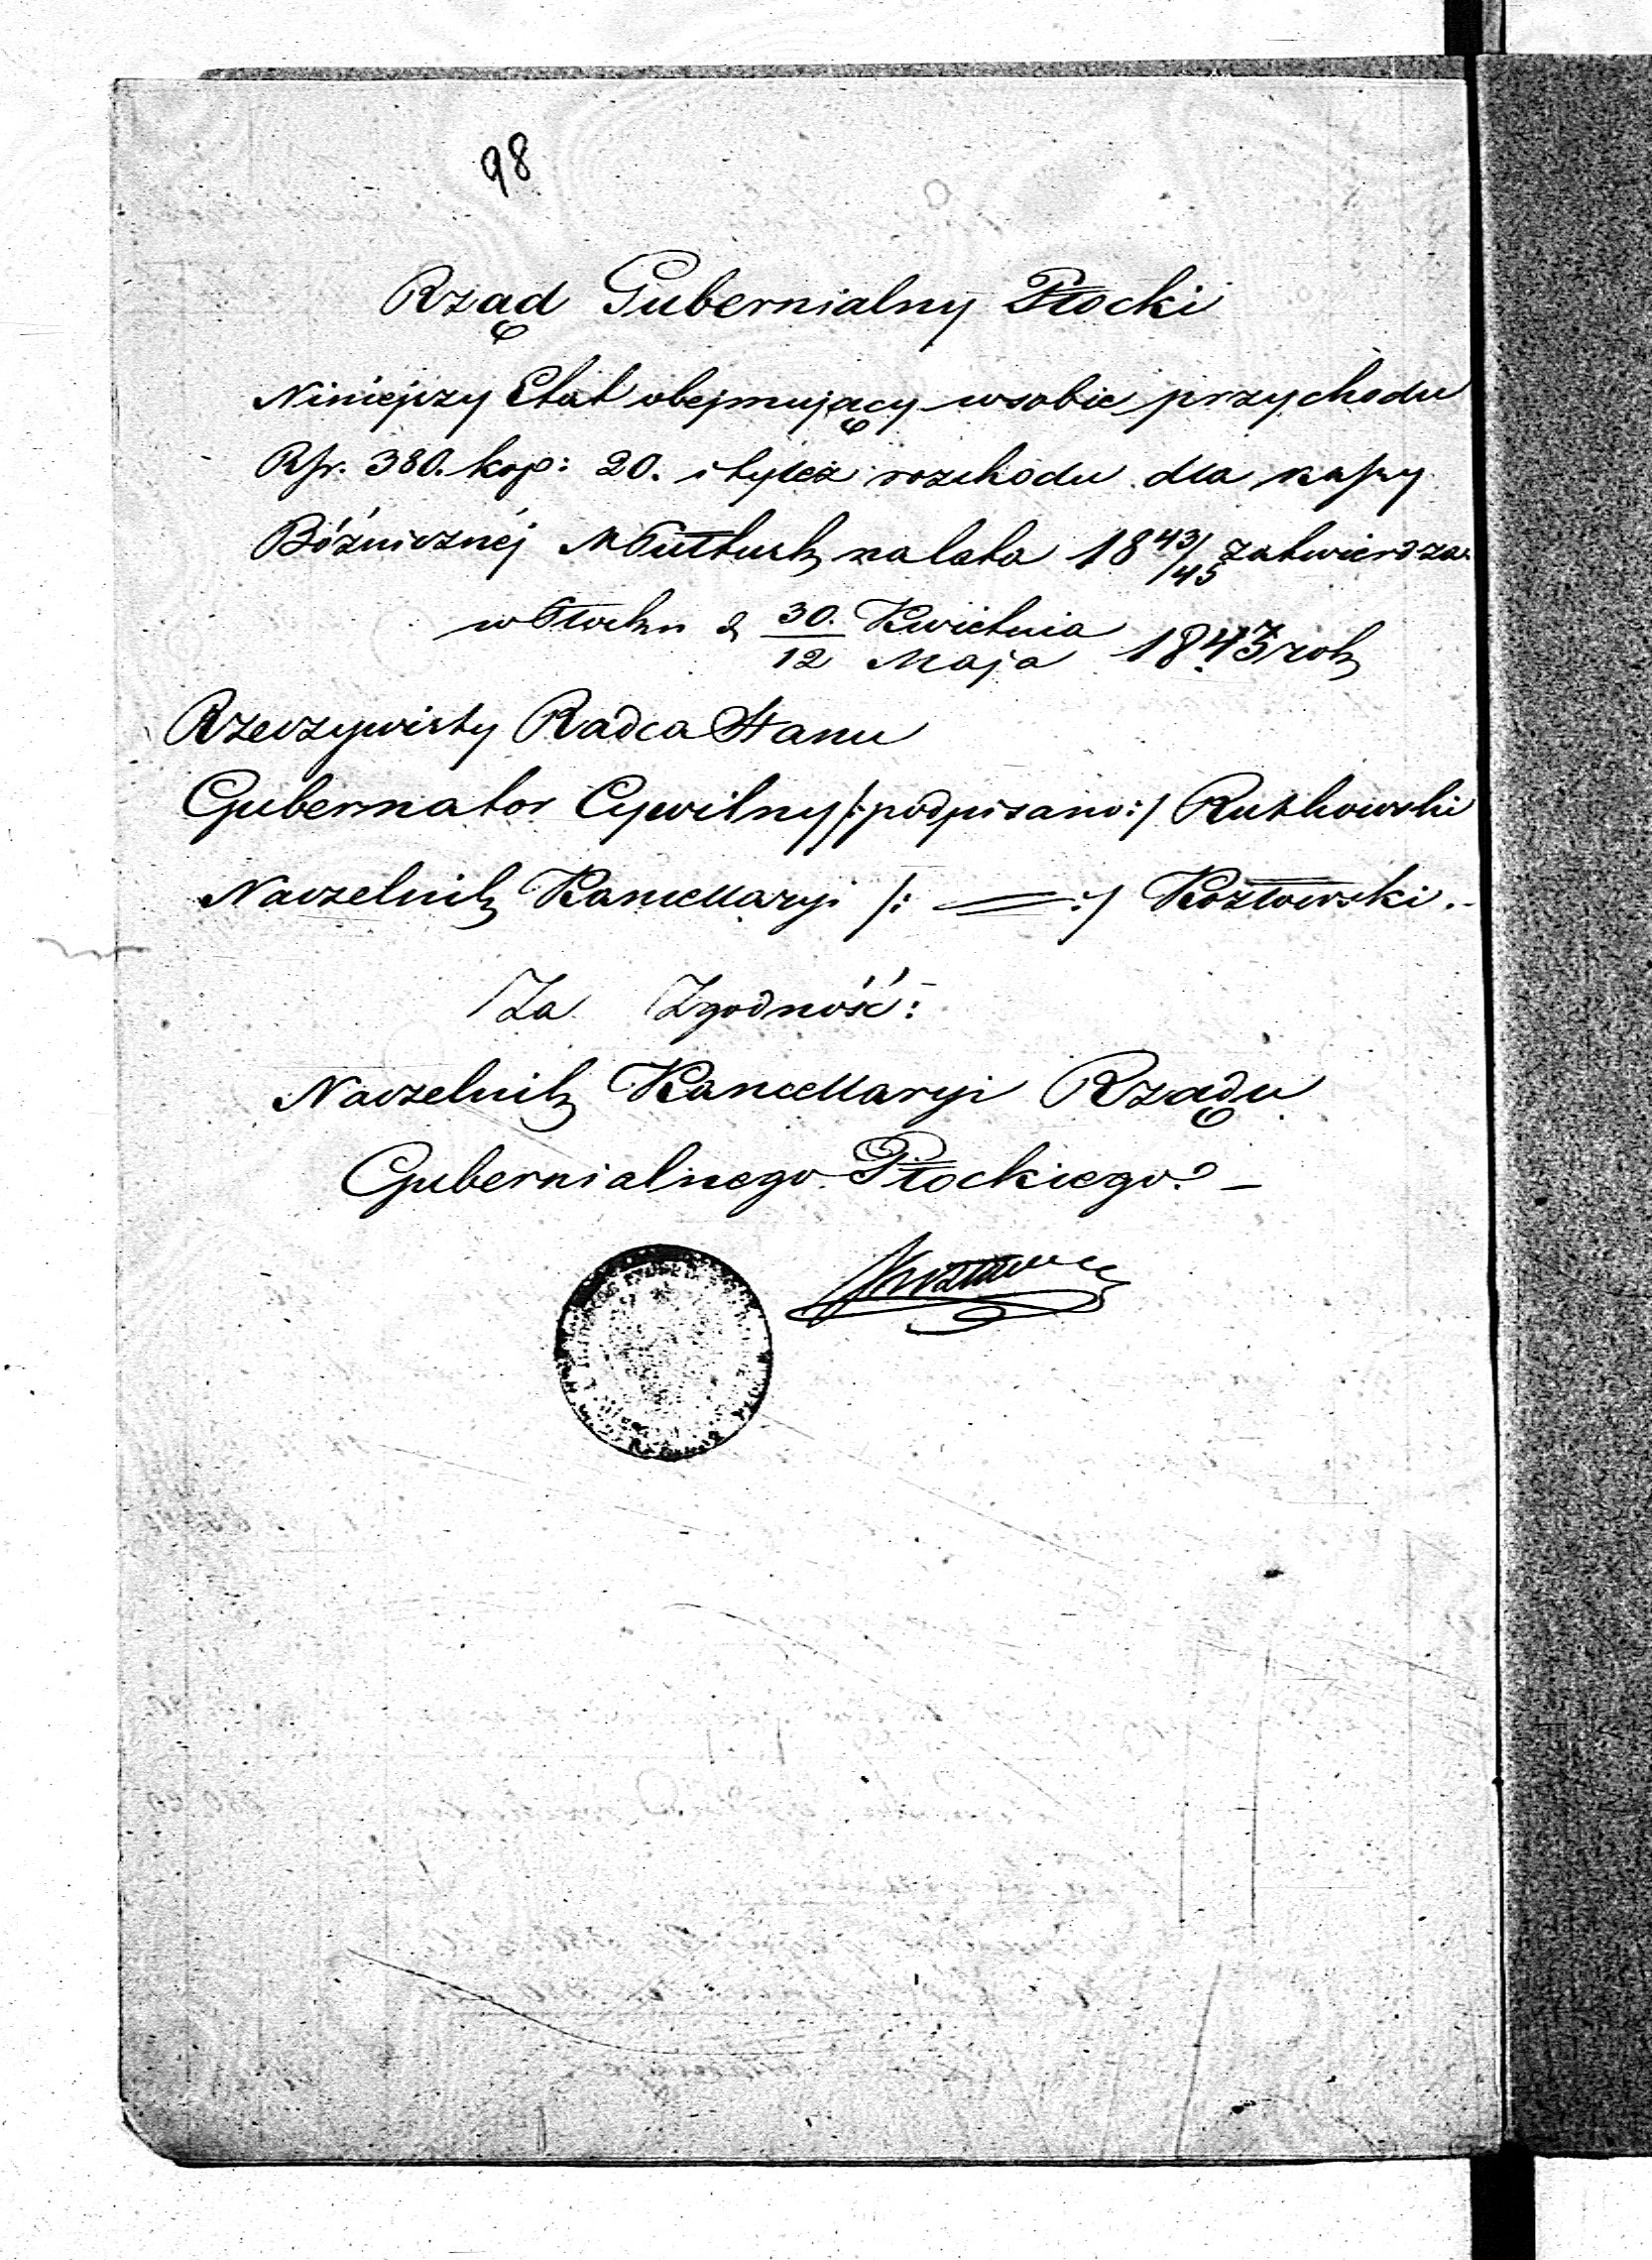 98
Rząd Gubernialny Płocki
Niniejszy Etat obejmujący w sobie przychodu
Rsr. 380. kop: 20. i tyleż rozchodu dla kassy
Bóźnicznéj M Pułtusk na lata 18 43/45 zatwierdza.
w Płocku d 30. Kwietnia / 12 Maja 1843 rok
Rzeczywisty Radca Stanu
Gubernator Cywilny /:podpisano:/ Rutkowski
Naczelnik Kancellaryi /: = :/ Kozłowski.-
Za Zgodność:
Naczelnik Kancellaryi Rządu
Gubernialnego Płockiego. -
Kozłowski